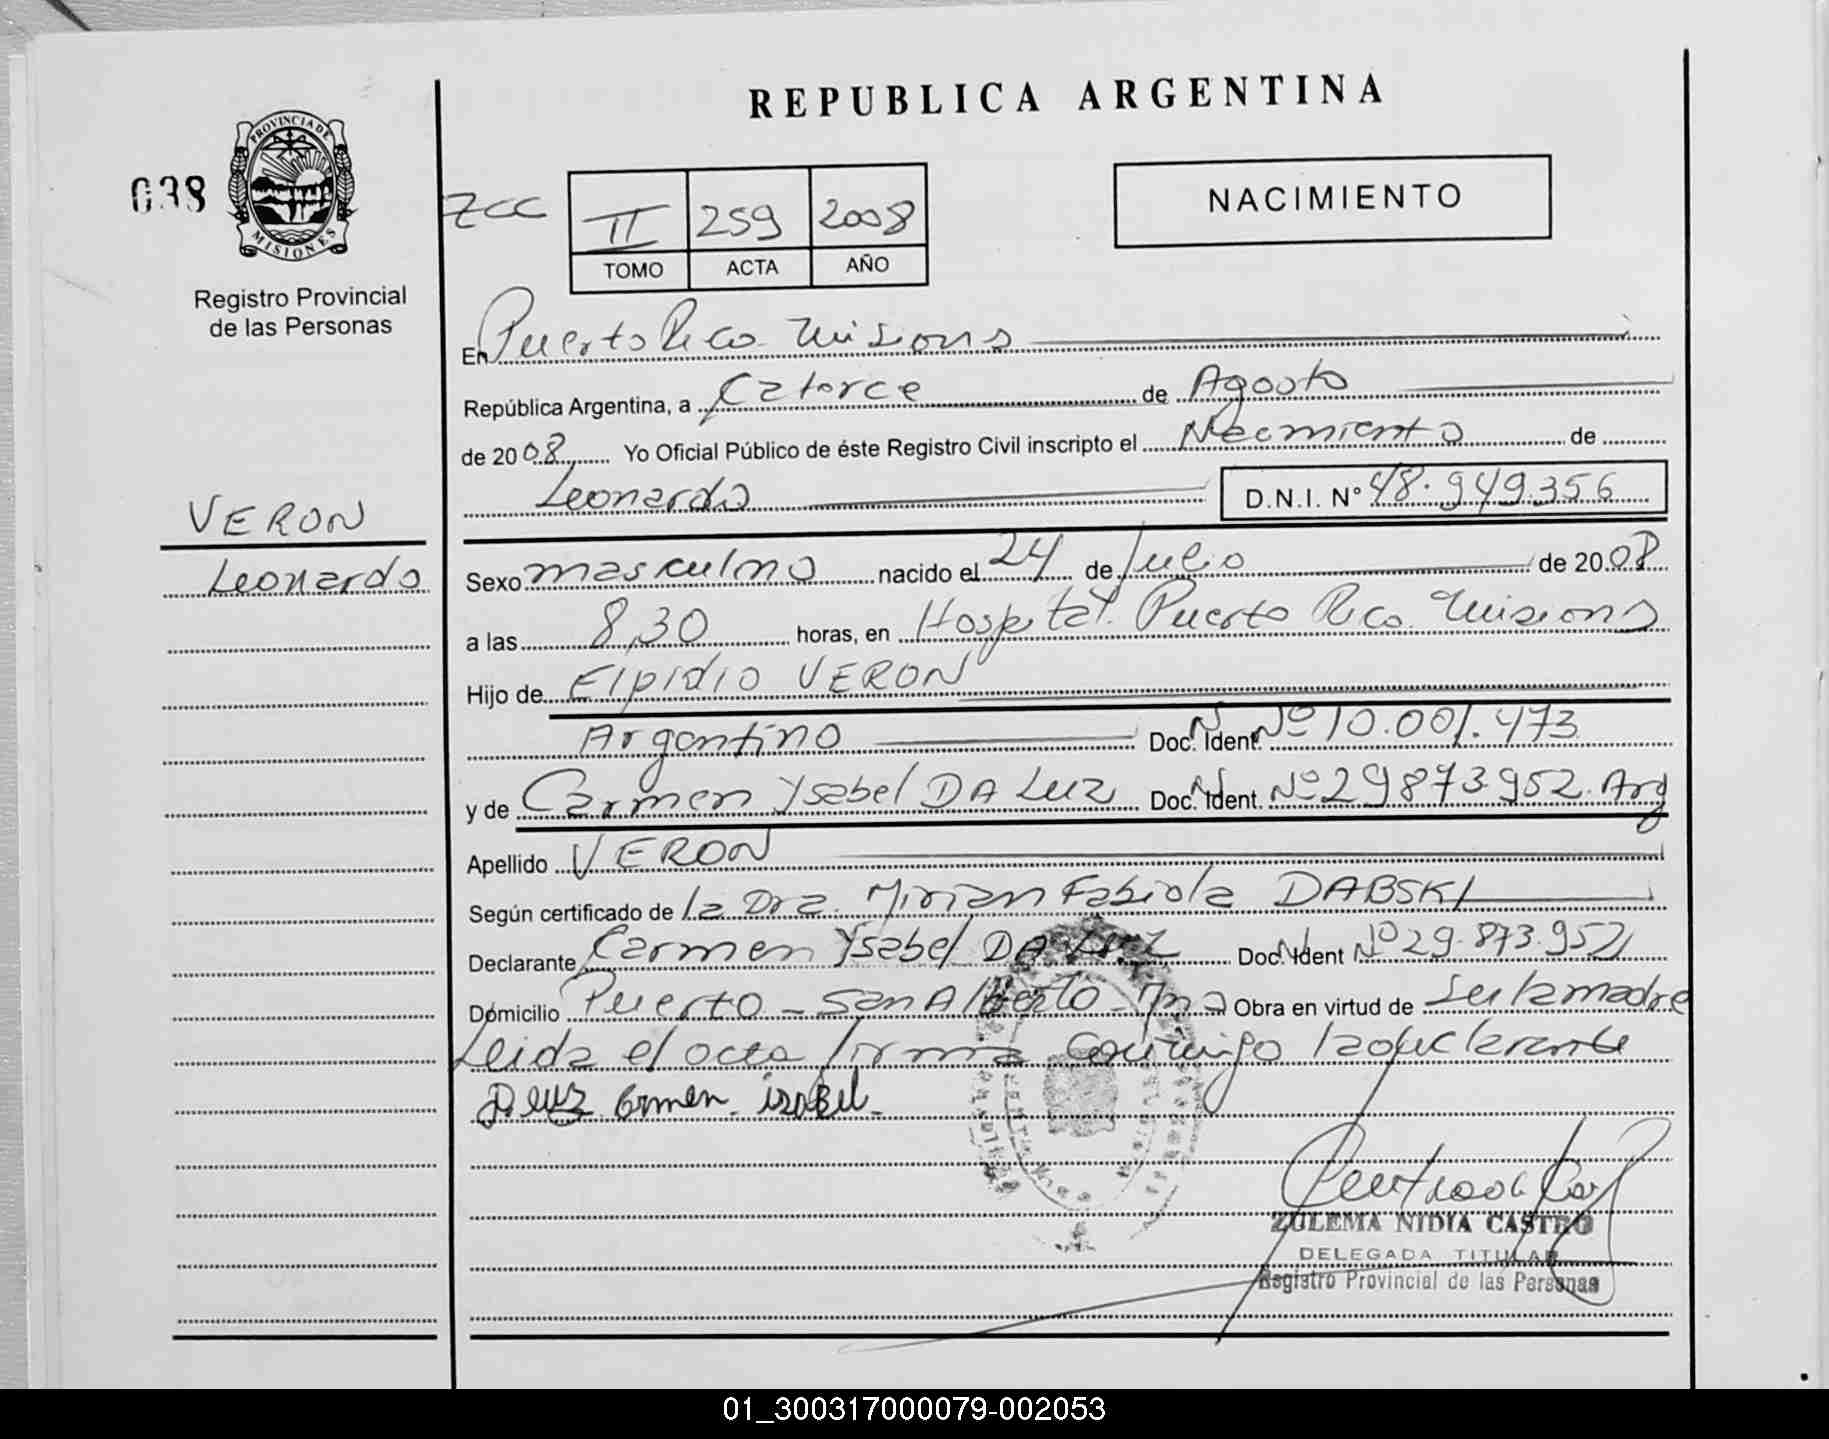 REPUBLICA ARGENTINA
PROVINCIA DE
MISIONES
038
Registro Provincial
de las Personas
ZCC
II 259 2008
TOMO ACTA AÑO
NACIMIENTO
En Puerto Rico Misiones
República Argentina, a Catorce de Agosto
de 2008 Yo Oficial Público de éste Registro Civil inscripto el Nacimiento de
Leonardo D.N.I. N° 48.949.356
VERON
Leonardo
Sexo masculino nacido el 24 de Julio de 2008
a las 8,30 horas, en Hospital Puerto Rico Misiones
Hijo de Elpidio VERON
Argentino Doc. N. Ident. Nº 10.001.473
y de Carmen Ysabel DA LUZ Doc. N. Ident. Nº 29873952. Arg
Apellido VERON
Según certificado de la Dra. Mirian Fabiola DABSKI
Declarante Carmen Ysabel DA LUZ Doc. N. Ident Nº 29.873.952
Domicilio Puerto - San Alberto - Mnes Obra en virtud de ser la madre
Leida el acta firma conmigo la declarante
ZULEMA NIDIA CASTRO
DELEGADA TITULAR
Registro Provincial de las Personas
01_300317000079-002053